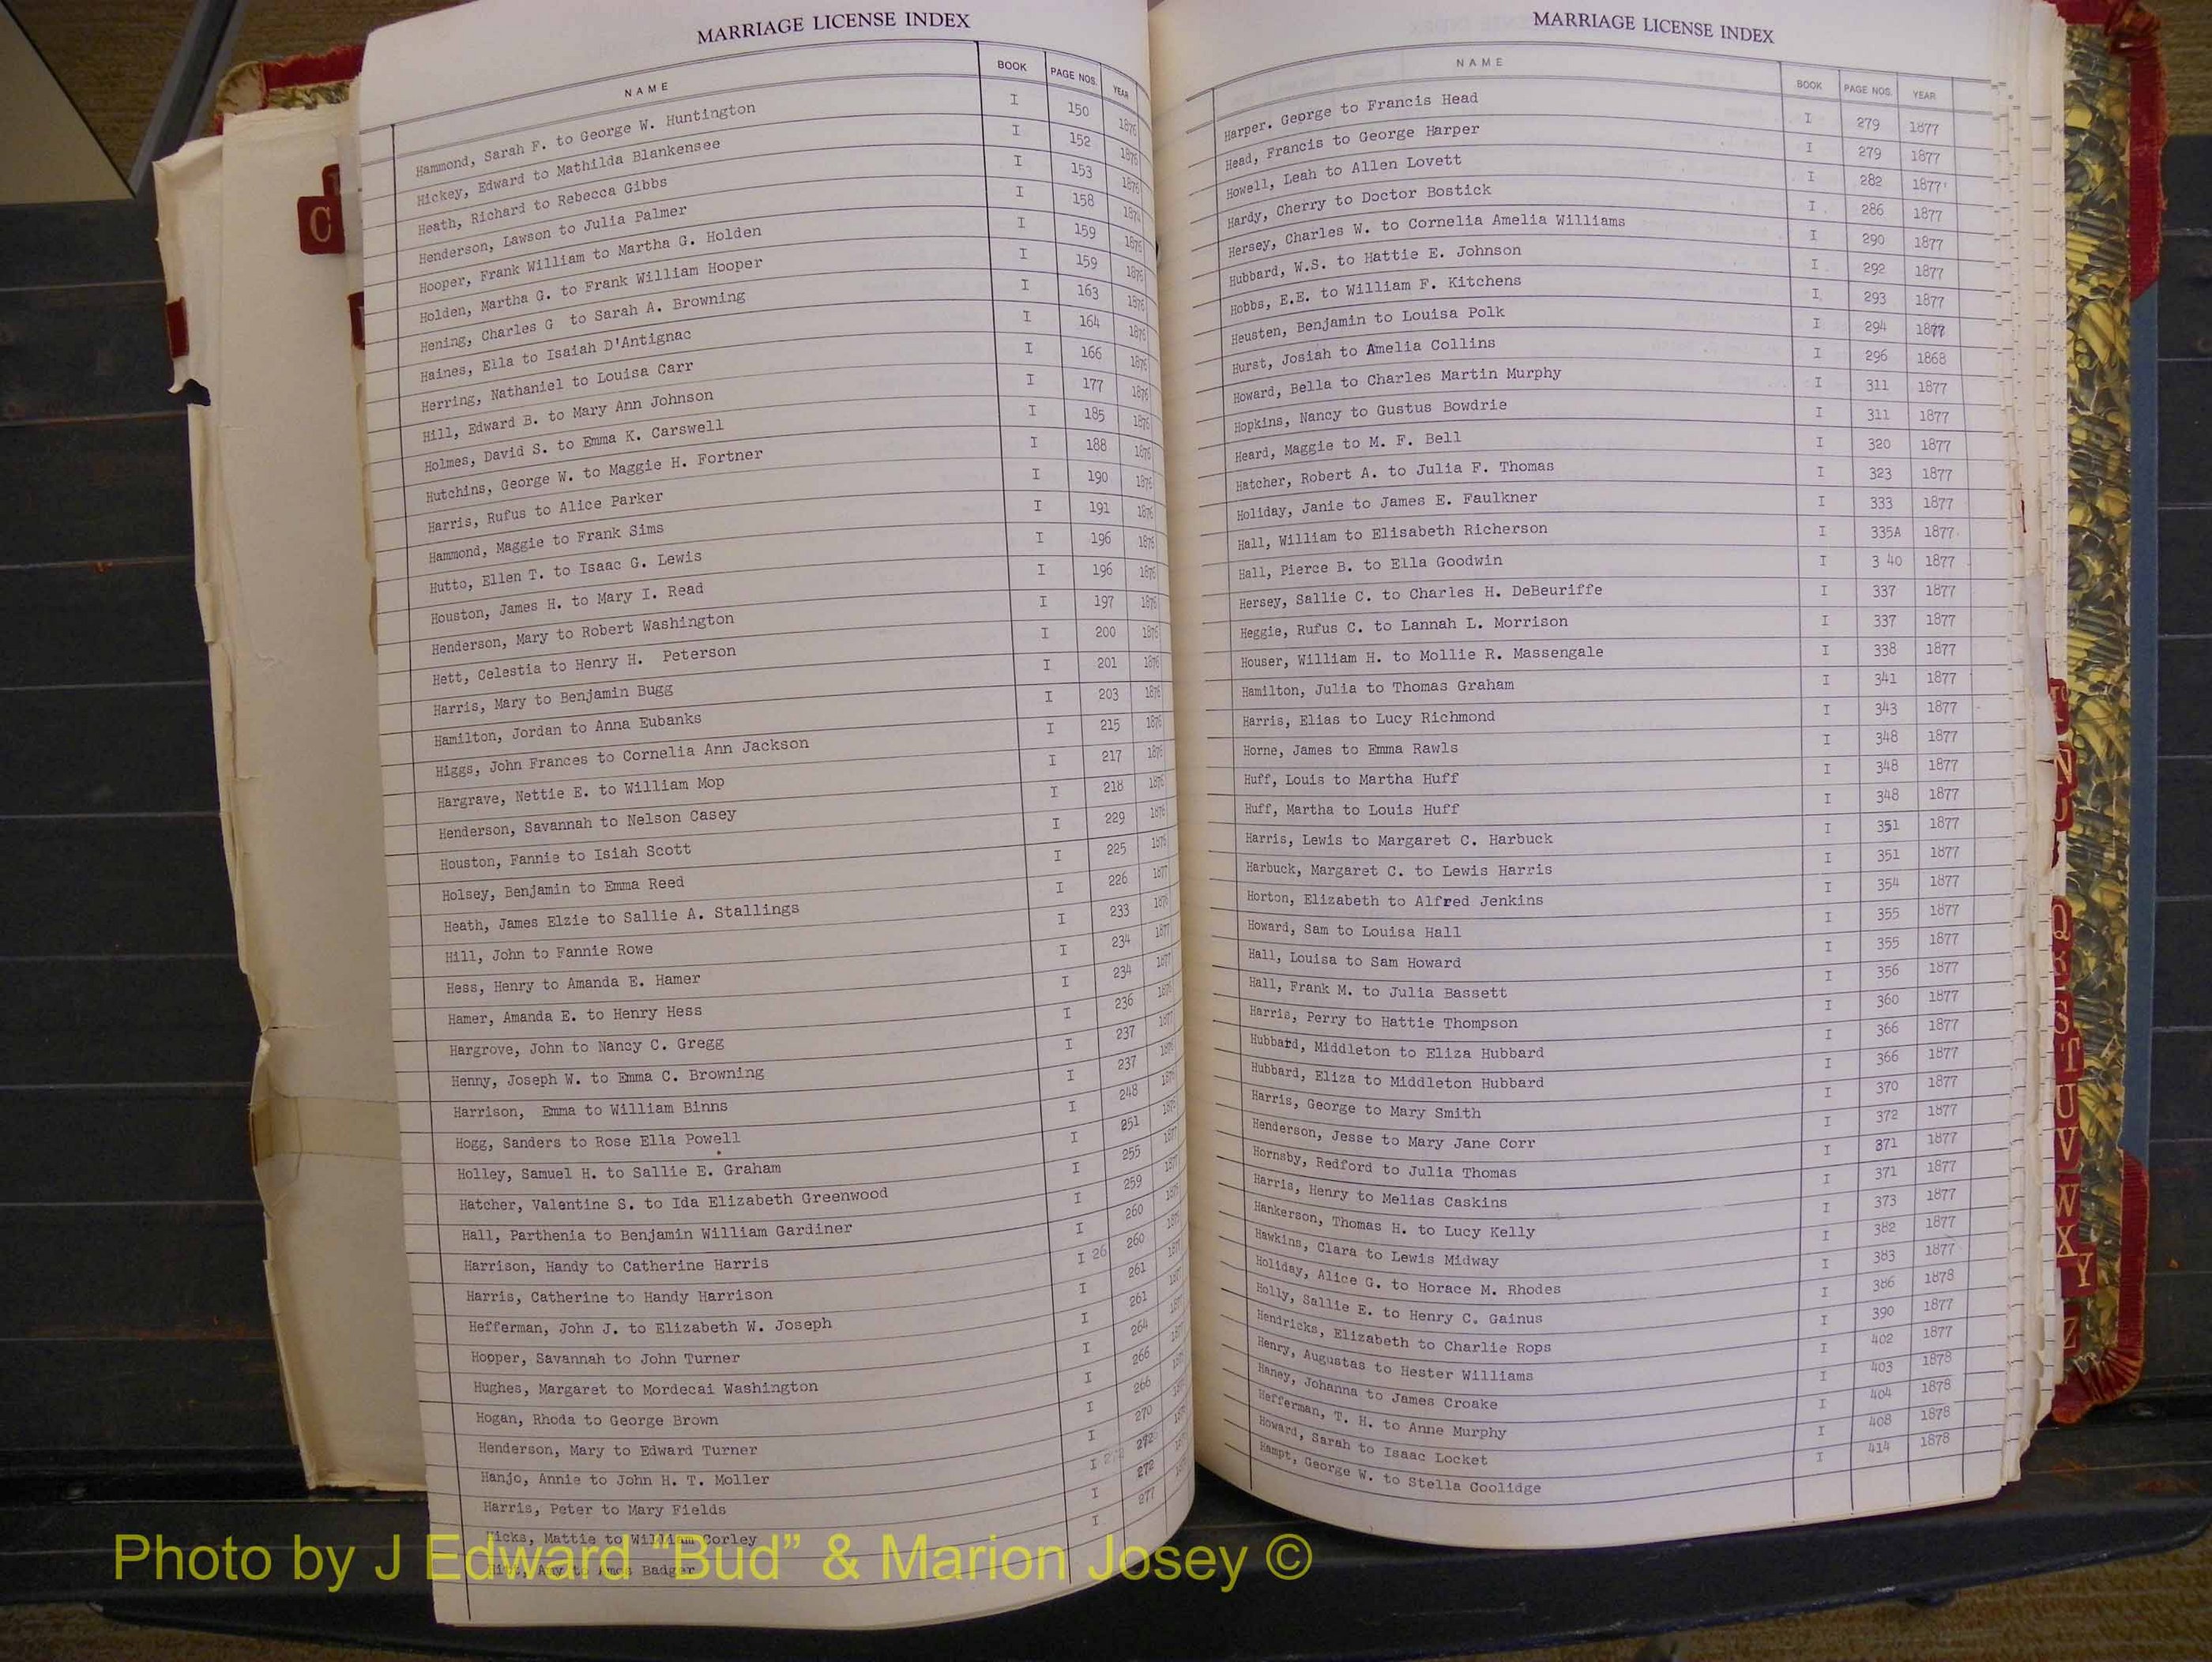 MARRIAGE LICENSE INDEX
NAME BOOK PAGE NOS. YEAR
Hammond, Sarah F. to George W. Huntington I 150 1876
Hickey, Edward to Mathilda Blankensee I 152 1876
Heath, Richard to Rebecca Gibbs I 153 1876
Henderson, Lawson to Julia Palmer I 158
Hooper, Frank William to Martha G. Holden I 159 1876
Holden, Martha G. to Frank William Hooper I 159 1876
Hening, Charles G to Sarah A. Browning I 163 1876
Haines, Ella to Isaiah D'Antignac I 164 1876
Herring, Nathaniel to Louisa Carr I 166 1876
Hill, Edward B. to Mary Ann Johnson I 177 1876
Holmes, David S. to Emma K. Carswell I 185 1876
Hutchins, George W. to Maggie H. Fortner I 188 1876
Harris, Rufus to Alice Parker I 190 1876
Hammond, Maggie to Frank Sims I 191 1876
Hutto, Ellen T. to Isaac G. Lewis I 196 1876
Houston, James H. to Mary I. Read I 196 1876
Henderson, Mary to Robert Washington I 197 1876
Hett, Celestia to Henry H. Peterson I 200 1876
Harris, Mary to Benjamin Bugg I 201 1876
Hamilton, Jordan to Anna Eubanks I 203 1876
Higgs, John Frances to Cornelia Ann Jackson I 215 1876
Hargrave, Nettie E. to William Mop I 217 1876
Henderson, Savannah to Nelson Casey I 218 1876
Houston, Fannie to Isiah Scott I 229 1876
Holsey, Benjamin to Emma Reed I 225 1876
Heath, James Elzie to Sallie A. Stallings I 226 1877
Hill, John to Fannie Rowe I 233 1876
Hess, Henry to Amanda E. Hamer I 234 1877
Hamer, Amanda E. to Henry Hess I 234 1877
Hargrove, John to Nancy C. Gregg I 236 1876
Henny, Joseph W. to Emma C. Browning I 237 1877
Harrison, Emma to William Binns I 237
Hogg, Sanders to Rose Ella Powell I 248
Holley, Samuel H. to Sallie E. Graham I 251
Hatcher, Valentine S. to Ida Elizabeth Greenwood I 255
Hall, Parthenia to Benjamin William Gardiner I 259
Harrison, Handy to Catherine Harris I 260
Harris, Catherine to Handy Harrison I 26 260
Hefferman, John J. to Elizabeth W. Joseph I 261
Hooper, Savannah to John Turner I 261
Hughes, Margaret to Mordecai Washington I 264
Hogan, Rhoda to George Brown I 266
Henderson, Mary to Edward Turner I 266
Hanjo, Annie to John H. T. Moller I 270
Harris, Peter to Mary Fields I 272
Hicks, Mattie to William Corley I 272
Amy to Amos Badger I 277
MARRIAGE LICENSE INDEX
NAME BOOK PAGE NOS. YEAR
Harper. George to Francis Head I 279 1877
Head, Francis to George Harper I 279 1877
Howell, Leah to Allen Lovett I 282 1877
Hardy, Cherry to Doctor Bostick I 286 1877
Hersey, Charles W. to Cornelia Amelia Williams I 290 1877
Hubbard, W.S. to Hattie E. Johnson I 292 1877
Hobbs, E.E. to William F. Kitchens I 293 1877
Heusten, Benjamin to Louisa Polk I 294 1877
Hurst, Josiah to Amelia Collins I 296 1868
Howard, Bella to Charles Martin Murphy I 311 1877
Hopkins, Nancy to Gustus Bowdrie I 311 1877
Heard, Maggie to M. F. Bell I 320 1877
Hatcher, Robert A. to Julia F. Thomas I 323 1877
Holiday, Janie to James E. Faulkner I 333 1877
Hall, William to Elisabeth Richerson I 335A 1877
Hall, Pierce B. to Ella Goodwin I 3 40 1877
Hersey, Sallie C. to Charles H. DeBeuriffe I 337 1877
Heggie, Rufus C. to Lannah L. Morrison I 337 1877
Houser, William H. to Mollie R. Massengale I 338 1877
Hamilton, Julia to Thomas Graham I 341 1877
Harris, Elias to Lucy Richmond I 343 1877
Horne, James to Emma Rawls I 348 1877
Huff, Louis to Martha Huff I 348 1877
Huff, Martha to Louis Huff I 348 1877
Harris, Lewis to Margaret C. Harbuck I 351 1877
Harbuck, Margaret C. to Lewis Harris I 351 1877
Horton, Elizabeth to Alfred Jenkins I 354 1877
Howard, Sam to Louisa Hall I 355 1877
Hall, Louisa to Sam Howard I 355 1877
Hall, Frank M. to Julia Bassett I 356 1877
Harris, Perry to Hattie Thompson I 360 1877
Hubbard, Middleton to Eliza Hubbard I 366 1877
Hubbard, Eliza to Middleton Hubbard I 366 1877
Harris, George to Mary Smith I 370 1877
Henderson, Jesse to Mary Jane Corr I 372 1877
Hornsby, Redford to Julia Thomas I 371 1877
Harris, Henry to Melias Caskins I 371 1877
Hankerson, Thomas H. to Lucy Kelly I 373 1877
Hawkins, Clara to Lewis Midway I 382 1877
Holiday, Alice G. to Horace M. Rhodes I 383 1877
Holly, Sallie E. to Henry C. Gainus I 386 1878
Hendricks, Elizabeth to Charlie Rops I 390 1877
Henry, Augustas to Hester Williams I 402 1877
Haney, Johanna to James Croake I 403 1878
Hefferman, T. H. to Anne Murphy I 404 1878
Howard, Sarah to Isaac Locket I 408 1878
Hampt, George W. to Stella Coolidge I 414 1878
C
N
Q
R
S
T
U
V
W
X
Y
Z
Photo by J Edward “Bud” & Marion Josey ©